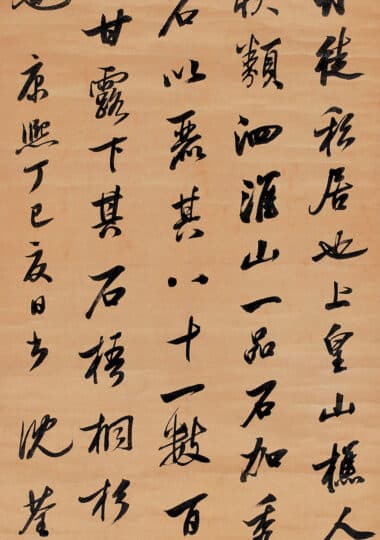 徒私居也上皇山樵人
狀類泗淮山一品石加秀
石以麗其八十一數百
甘露下其石梧桐杉
康熙丁巳夏日書 沈荃